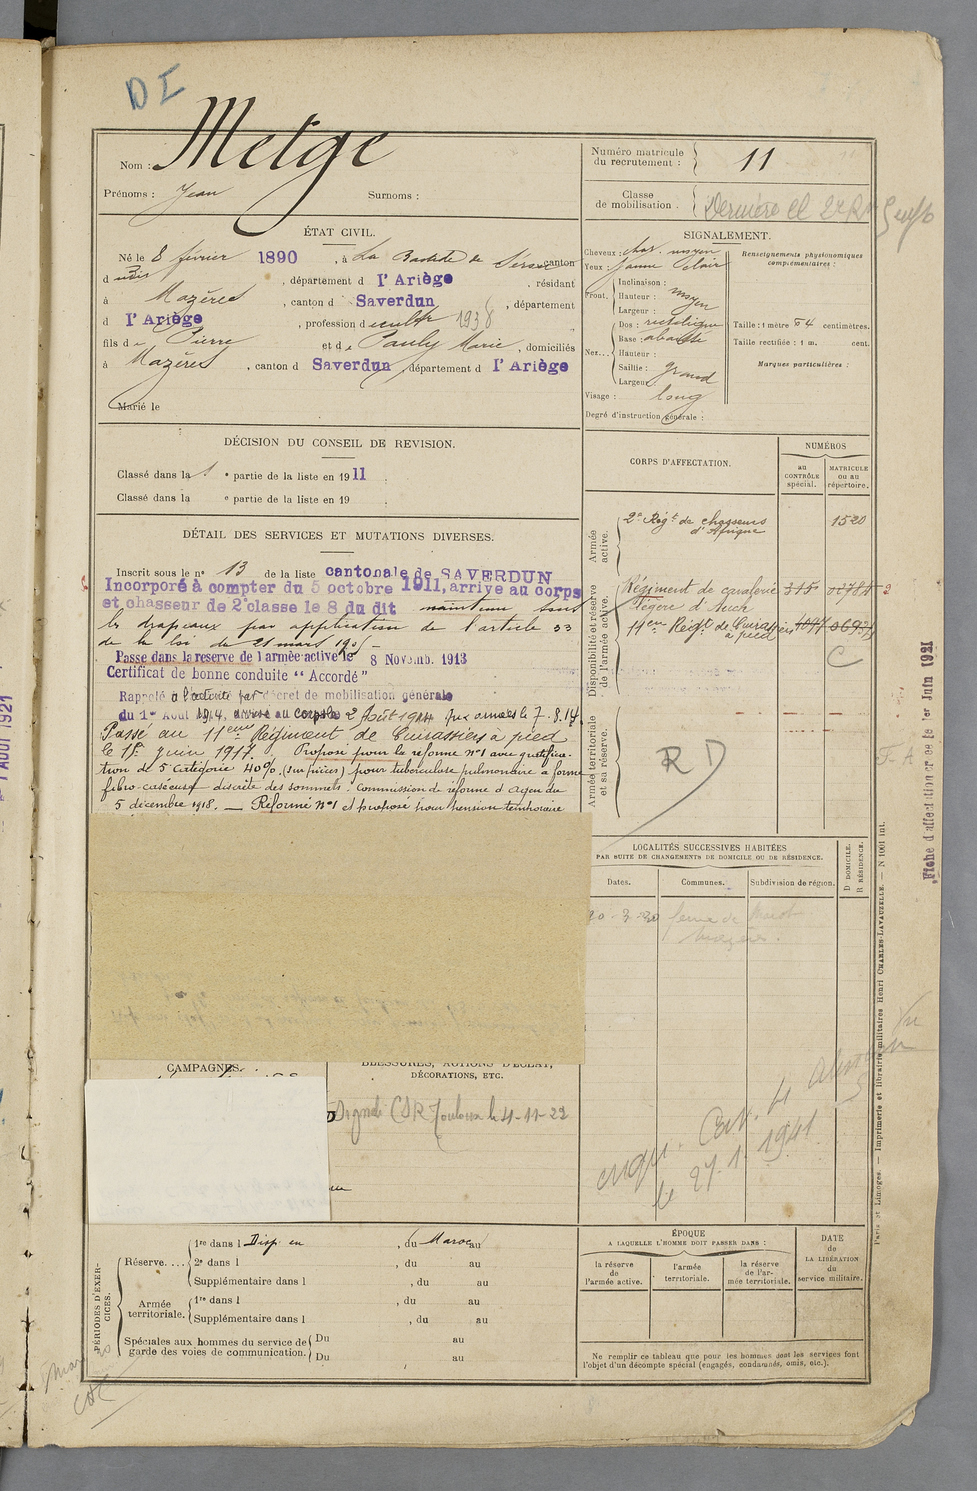 DI
Nom : Metge
Prénoms : Jean Surnoms :
Numéro matricule du recrutement : 11
Classe de mobilisation .
ÉTAT CIVIL.
Né le 8 février 1890 , à La Bastide de Sérou canton
d , département d l'Ariège , résidant
à Mazères , canton d Saverdun , département
d l'Ariège , profession d cultr 1938
fils de Pierre et de Pauly Marie , domiciliés
à Mazères , canton d Saverdun , département d l'Ariège
Marié le
SIGNALEMENT.
Cheveux : chat. moyen
Yeux : jaune clair
Front. Inclinaison :
Hauteur : moyen
Largeur :
Nez... Dos : rectiligne
Base : abaissée
Hauteur :
Saillie : grand
Largeur :
Visage : long
Degré d'instruction générale :
Renseignements physionomiques complémentaires :
Taille : 1 mètre 54 centimètres.
Taille rectifiée : 1 m. cent.
Marques particulières :
DÉCISION DU CONSEIL DE REVISION.
Classé dans la 1 e partie de la liste en 1911 .
Classé dans la e partie de la liste en 19 .
DÉTAIL DES SERVICES ET MUTATIONS DIVERSES.
Inscrit sous le n° 13 de la liste cantonale de SAVERDUN
Incorporé à compter du 5 octobre 1911, arrive au corps
et chasseur de 2e classe le 8 du dit maintenu sous
les drapeaux par application de l'article 33
de la loi de 21 mars 1905 -
Passe dans la reserve de l'armée active le 8 Novemb. 1913
Certificat de bonne conduite "Accordé"
Rappelé à l'activité par décret de mobilisation générale
du 1er Aout 1914, arrivé au corps le 2 Août 1914 Aux armées le 7.8.14
Passé au 11eme Régiment de Cuirassiers à pied
le 1er juin 1917. Proposé pour la réforme n°1 avec gratifica-
tion de 5e catégorie 40% (sur pièces) pour tuberculose pulmonaire à forme
fibro-caséeuse discrète des sommets. Commission de réforme d'Agen du
5 décembre 1918. — Réformé N°1 et proposé pour pension temporaire
CORPS D'AFFECTATION.
NUMÉROS
au CONTRÔLE spécial.
MATRICULE ou au répertoire.
Armée active.
2e Régt de chasseurs d'Afrique 1520
Disponibilité et réserve de l'armée active.
Régiment de cavalerie légère d'Auch 315
11em Régt de Cuirassiers à pied
C
Armée territoriale et sa réserve.
RD
LOCALITÉS SUCCESSIVES HABITÉES
PAR SUITE DE CHANGEMENTS DE DOMICILE OU DE RÉSIDENCE.
Dates.
Communes.
Subdivision de région.
D DOMICILE.
R RÉSIDENCE.
Mazères.
Le 27.1.1941
CAMPAGNES.
BLESSURES, ACTIONS D'ÉCLAT, DÉCORATIONS, ETC.
CDR Toulouse le 4-11-22
PÉRIODES D'EXERCICES.
Réserve....
1re dans l Disp. en , du Maroc au
2e dans l , du au
Supplémentaire dans l , du au
Armée territoriale.
1re dans l , du au
Supplémentaire dans l , du au
Spéciales aux hommes du service de garde des voies de communication.
Du au
Du au
ÉPOQUE
A LAQUELLE L'HOMME DOIT PASSER DANS :
la réserve de l'armée active.
l'armée territoriale.
la réserve de l'armée territoriale.
DATE de LA LIBÉRATION du service militaire.
Ne remplir ce tableau que pour les hommes dont les services font
l'objet d'un décompte spécial (engagés, condamnés, omis, etc.).
Paris et Limoges. — Imprimerie et librairie militaires Henri CHARLES-LAVAUZELLE. — N 1001 int.
Fiche d'affectation créée le 1er Juin 1921